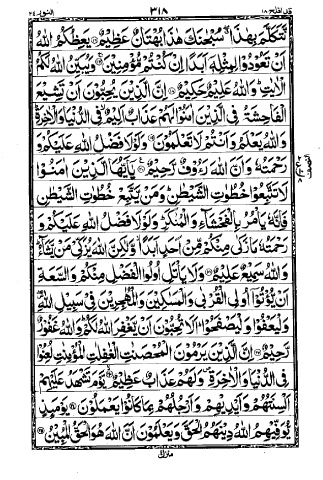 قد افلح ١٨ ٣١٨ النور ٢٤
نَّتَكَلَّمَ بِهٰذَا سُبْحٰنَكَ هٰذَا بُهْتَانٌ عَظِيْمٌ يَعِظُكُمُ اللّٰهُ
اَنْ تَعُوْدُوْا لِمِثْلِهٖٓ اَبَدًا اِنْ كُنْتُمْ مُّؤْمِنِيْنَ وَيُبَيِّنُ اللّٰهُ لَكُمُ
الْاٰيٰتِ وَاللّٰهُ عَلِيْمٌ حَكِيْمٌ اِنَّ الَّذِيْنَ يُحِبُّوْنَ اَنْ تَشِيْعَ
الْفَاحِشَةُ فِى الَّذِيْنَ اٰمَنُوْا لَهُمْ عَذَابٌ اَلِيْمٌ فِى الدُّنْيَا وَالْاٰخِرَةِ
وَاللّٰهُ يَعْلَمُ وَاَنْتُمْ لَا تَعْلَمُوْنَ وَلَوْلَا فَضْلُ اللّٰهِ عَلَيْكُمْ وَ
رَحْمَتُهٗ وَاَنَّ اللّٰهَ رَءُوْفٌ رَّحِيْمٌ يٰٓاَيُّهَا الَّذِيْنَ اٰمَنُوْا
لَا تَتَّبِعُوْا خُطُوٰتِ الشَّيْطٰنِ وَمَنْ يَّتَّبِعْ خُطُوٰتِ الشَّيْطٰنِ
فَاِنَّهٗ يَاْمُرُ بِالْفَحْشَآءِ وَالْمُنْكَرِ وَلَوْلَا فَضْلُ اللّٰهِ عَلَيْكُمْ وَ
رَحْمَتُهٗ مَا زَكٰى مِنْكُمْ مِّنْ اَحَدٍ اَبَدًا وَّلٰكِنَّ اللّٰهَ يُزَكِّيْ مَنْ يَّشَآءُ
وَاللّٰهُ سَمِيْعٌ عَلِيْمٌ وَلَا يَاْتَلِ اُولُوا الْفَضْلِ مِنْكُمْ وَالسَّعَةِ
اَنْ يُّؤْتُوْٓا اُولِى الْقُرْبٰى وَالْمَسٰكِيْنَ وَالْمُهٰجِرِيْنَ فِيْ سَبِيْلِ اللّٰهِ
وَلْيَعْفُوْا وَلْيَصْفَحُوْا اَلَا تُحِبُّوْنَ اَنْ يَّغْفِرَ اللّٰهُ لَكُمْ وَاللّٰهُ غَفُوْرٌ
رَّحِيْمٌ اِنَّ الَّذِيْنَ يَرْمُوْنَ الْمُحْصَنٰتِ الْغٰفِلٰتِ الْمُؤْمِنٰتِ لُعِنُوْا
فِى الدُّنْيَا وَالْاٰخِرَةِ وَلَهُمْ عَذَابٌ عَظِيْمٌ يَّوْمَ تَشْهَدُ عَلَيْهِمْ
اَلْسِنَتُهُمْ وَاَيْدِيْهِمْ وَاَرْجُلُهُمْ بِمَا كَانُوْا يَعْمَلُوْنَ يَوْمَئِذٍ
يُّوَفِّيْهِمُ اللّٰهُ دِيْنَهُمُ الْحَقَّ وَيَعْلَمُوْنَ اَنَّ اللّٰهَ هُوَ الْحَقُّ الْمُبِيْنُ
منزل